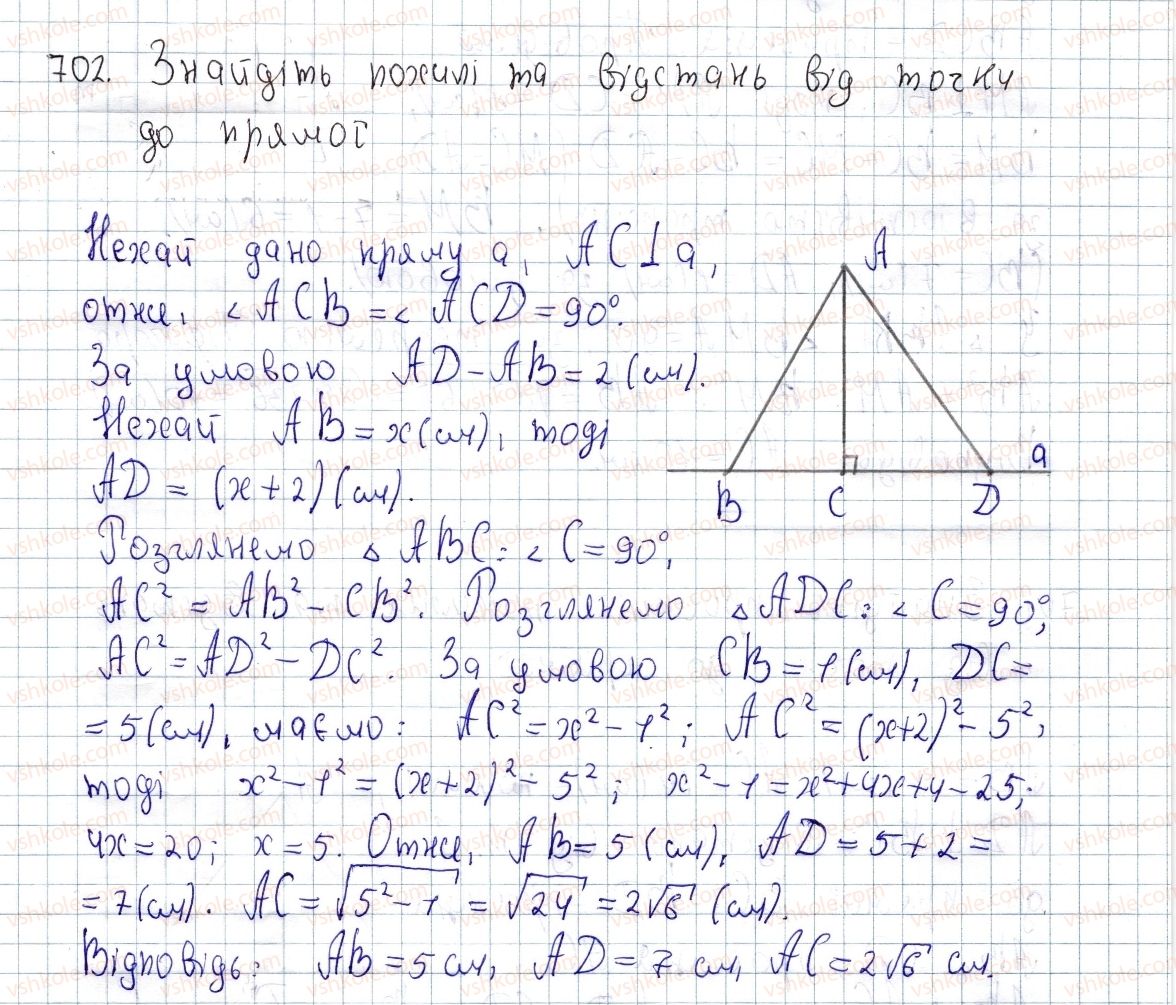 702. Знайдіть похилі та відстань від точки
до прямої
Нехай дано пряму a, AC⊥a,
отже, ∠ACB = ∠ACD = 90°.
За умовою AD - AB = 2 (см).
Нехай AB = x (см), тоді
AD = (x + 2) (см).
Розглянемо △ ABC: ∠C = 90°,
AC² = AB² - CB². Розглянемо △ADC: ∠C = 90°;
AC² = AD² - DC². За умовою CB = 1 (см), DC =
= 5 (см), маємо: AC² = x² - 1²; AC² = (x+2)² - 5²;
тоді x² - 1² = (x+2)² - 5²; x² - 1 = x² + 4x + 4 - 25;
4x = 20; x = 5. Отже, AB = 5 (см), AD = 5 + 2 =
= 7 (см). AC = √(5² - 1) = √24 = 2√6 (см).
Відповідь: AB = 5 см, AD = 7 см, AC = 2√6 см.
A
a
B C D
vshkole.com